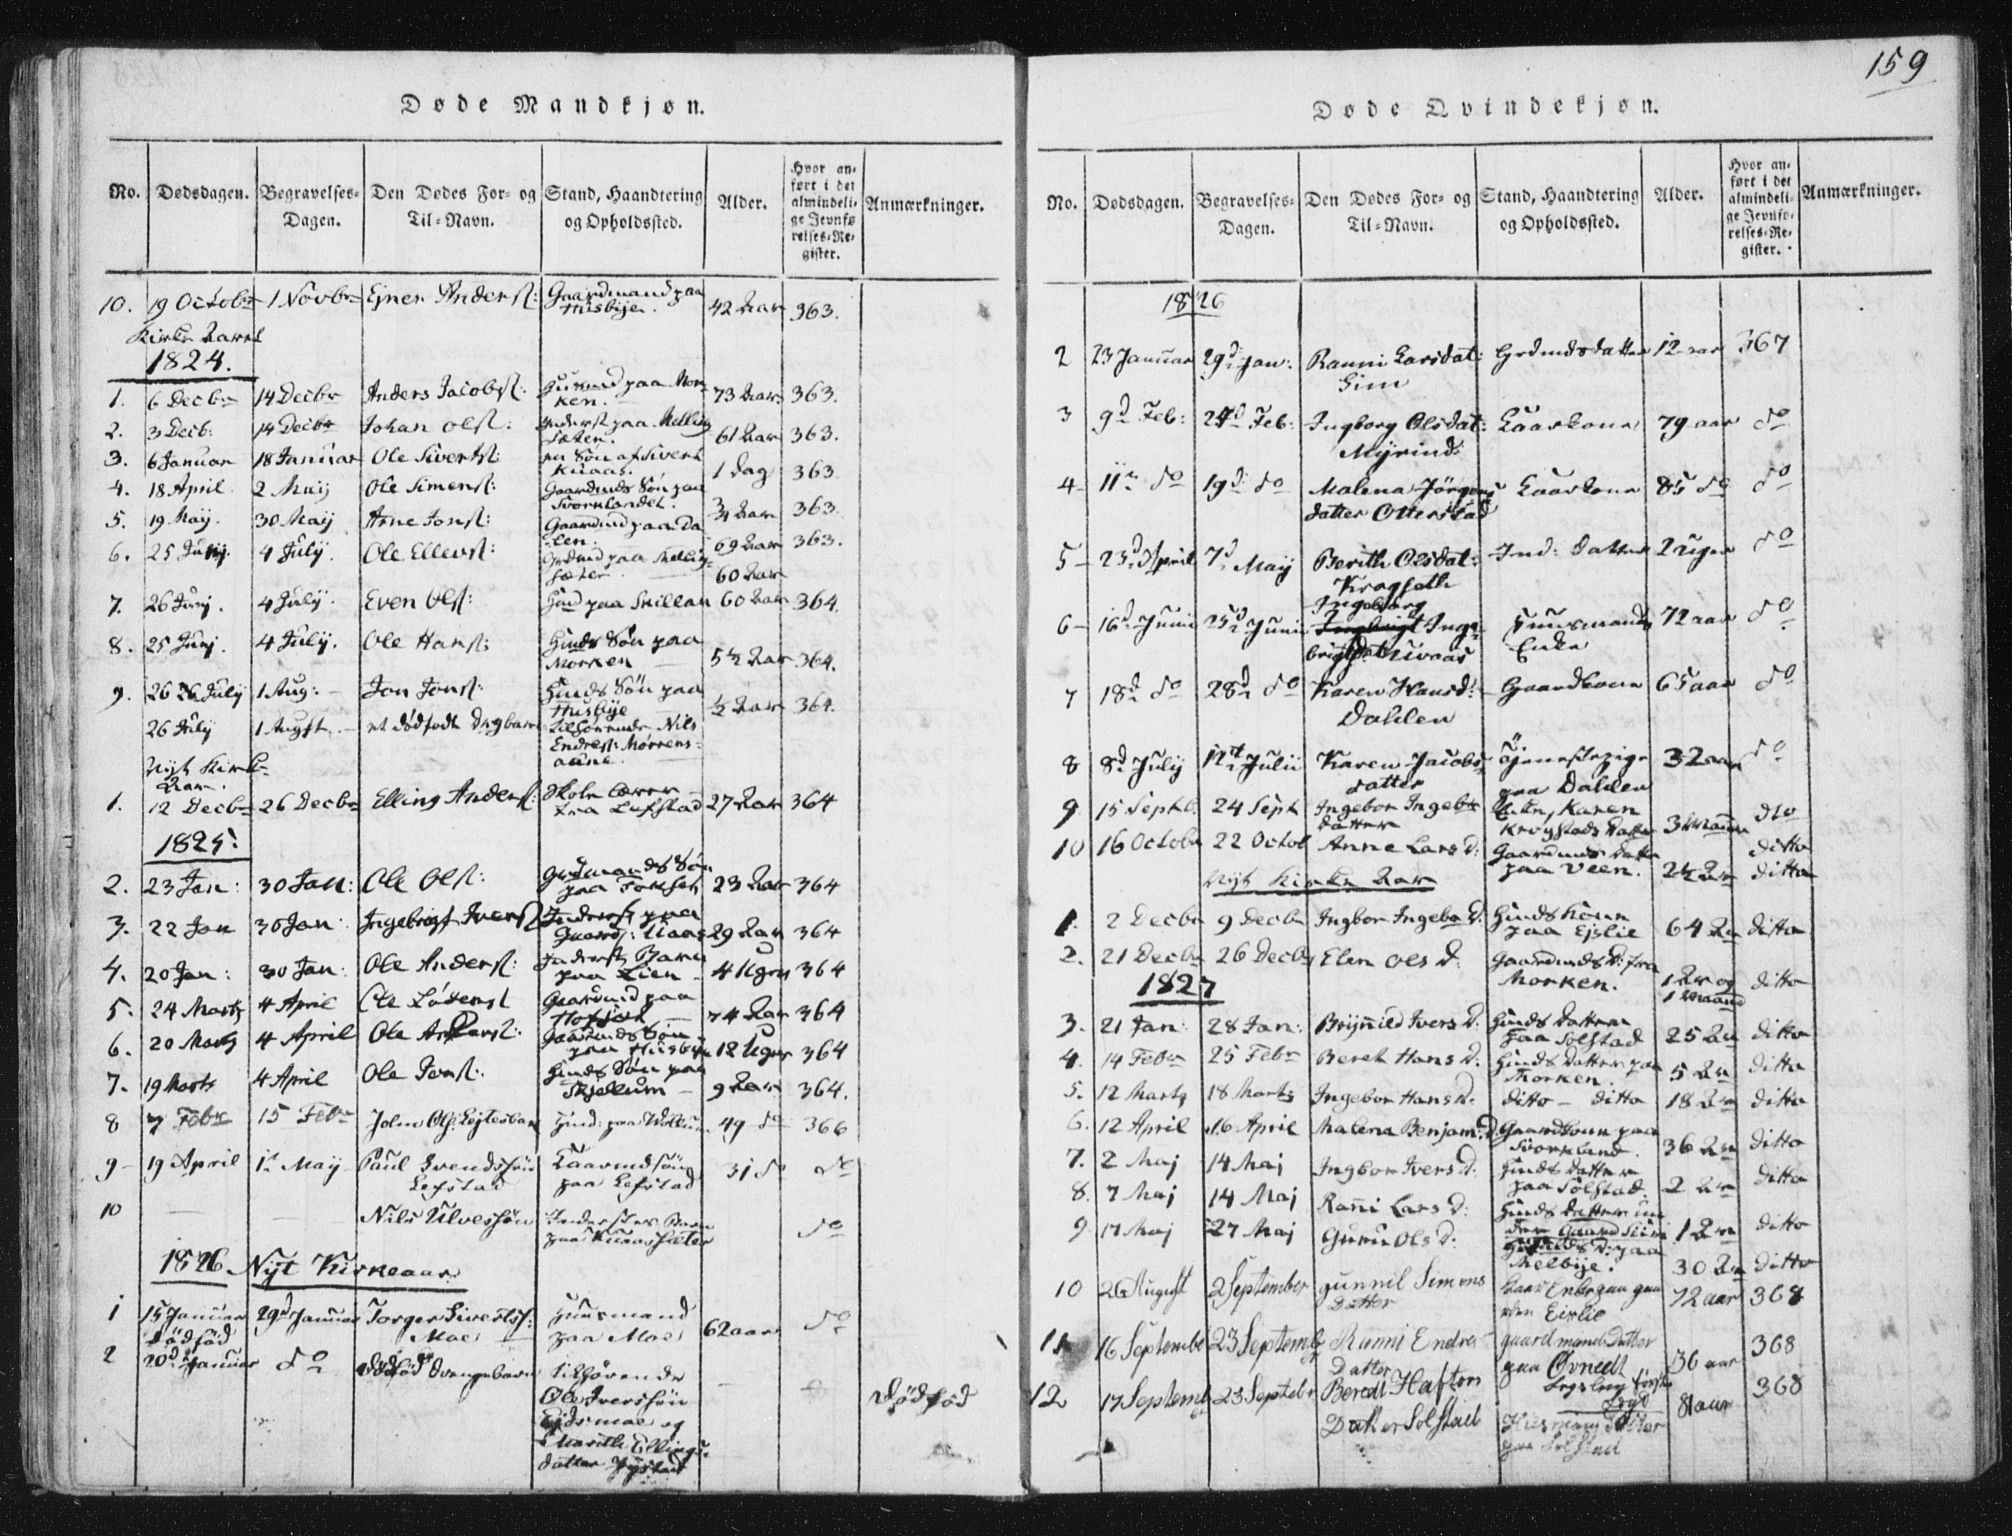 159
Døde Mandkjøn.
No. Dødsdagen. Begravelses-Dagen. Den Dødes For- og Til-Navn. Stand, Haandtering og Opholdssted. Alder. Hvor anført i det almindelige Jevnførelses-Register. Anmærkninger.
10. 19 Octobr 1 Novbr Ejner Anders: Gaardmand paa Husbije. 42 Aar 363.
Kirke Aaret
1824.
1. 6 Decbr 14 Decbr Anders Jacobs: paa Morken. 73 Aar 363.
2. 3 Decb: 14 Decbr Johan Ols: Inderst paa Melling sæter. 61 Aar 363.
3. 6 Januar 18 Januar Ole Siverts: en Søn af Sivert Kuaas. 1 dag 363
4. 18 April 2 Maij Ole Simens: Gaardmds Søn paa Svorklandet. 3/4 Aar 363.
5. 19 Maij. 30 Maij Arne Jons: Gaardmd paa Dalen. 69 Aar 363.
6. 25 Junij. 4 July. Ole Ellevs: paa Melling sæter 60 Aar
7. 26 Junj. 4 July. Even Ols: Hmd paa Skillan 60 Aar 364.
8. 25 Junj. 4 July. Ole Hans: Hmds Søn paa Morken 5½ Aar 364.
9. 26 July 1 Aug: Jon Jons: Hmds Søn paa Husbije ½ Aar 364.
26 July 1 Augst. et dødfødt Drgbarn tilhørende Nils Endres: Mørrens-aune.
Nyt Kirke Aar.
1. 12 Decbr 26 Decbr Elling Anders: Skole Lærer fra Lefstad 27 Aar 364
1825:
2. 23 Jan: 30 Jan: Ole Ols: Grdmands Søn paa 23 Aar 364
3. 22 Jan 30 Jan: Ingebrigt Ivers: Inderst paa Uaas 29 Aar 364
4. 20 Jan: 30 Jan: Ole Anders: Inderst Barn paa Lien 4 Uger 364
5. 24 Marts 4 April Ole Gaardmd paa 74 Aar 364
6. 20 Marts 4 April Ole Gaardmds Søn paa Husbije 12 Uger 364
7. 19 Marts 4 April Ole Jons: Hmds Søn paa Skjølium 9 Aar 364.
8 7 Febr 15 Febr John Ols: Hmd: paa 49 do 366
9 19 April 1st Maij Paul Svendssøn Lefstad Gaarmdsøn paa Lefstad 31 do do
10 Nils Ulvessøn Inderstes Barn paa Kuaassæter do
1826 Nyt Kirkeaar
1 15 Januar 29d Januar Torger Sivertss: Moe Huusmand paa Moe 62 aar do
dødfød
2 20d Januar do dødfød Drengebarn tilhørende Ole Iversøn Eidsmoe og Marith Ellings-datter dødfød
Døde Qvindekjøn.
No. Dødsdagen. Begravelses-Dagen. Den Dødes For- og Til-Navn. Stand, Haandtering og Opholdssted. Alder. Hvor anført i det almindelige Jevnførelses-Register. Anmærkninger.
1826
2 23 Januar 29d Jan: Ranni Larsdat: Sim Grdmdsdatter 12 aar 367
3 9d Feb: 24d Feb: Ingborg Olsdat: Kaarkone 79 aar do
4 11te do 19d do Malena Jörgens datter Otterstad Kaarkone 85 do do
5 23d April 7d Maij Berith Olsdat: Krogseth Ind: datter 2 uger do
6 16d Junii 25d Junii Ingeborg Ingebrigtdat Kuaas Huusmands Enke 72 aar do
7 18d do 28d do Karen Hansd: Dahlen Gaardkone 65 aar do
8 8d July 12t Julii Karen Jacobs datter Tjenestepige paa Dahlen 32 aar do
9. 15 Septb. 24 Sept Ingebor Ingeb datter Karen Krogstads Datter 3 Maaner dto
10 16 Octobr 22 Octob Anne Lars D: Gaardmds Datter paa Veen. 2½ Aar ditto
ditto
Nyt Kirke Aar
1. 2 Decbr 9 Decbr Ingbor Ingebr D: Hmds Kone paa Ejslie 64 Aar ditto
2. 21 Decbr 26 Decbr Elen Ols D: Gaardmds D: fra Morken. 1 Aar og 1 Maaned ditto
1827
3. 21 Jan: 28 Jan: Brijnild Ivers D: Hmds Datter paa Solstad 25 Aar ditto
4. 14 Febr 25 Febr Beret Hans D: Hmds Datter paa Morken. 5 Aar ditto
5. 12 Marts 18 Marts Ingebor Hans D: ditto ditto 18 Aar ditto
6. 12 April 16 April Malena Benjam: D: Gaardkone paa Svorkland. 36 Aar ditto
7. 2 Maj 14 Maj Ingbor Ivers D: Hmds Datter paa Solstad. 2 Aar ditto
8. 7 Maj 14 Maj Ranni Lars D: Hmds Datter under Gaard 1 Aar ditto
9 17 Maj 27 Maj Guru Ols D: D: paa Melbije. 30 Aar ditto
10 26 August 2 September gunnil Simons Datter Enke paa gaarden Eislie 72 aar 368
11 16 September 23 Septembr Ranni Endres Datter gaardmands Datter paa Øvnedt 36 aar 368
12 17 Septemb 23 Septebr Beredt Haftors Datter Solstad Husmans Datter paa Solstad 8 aar 368